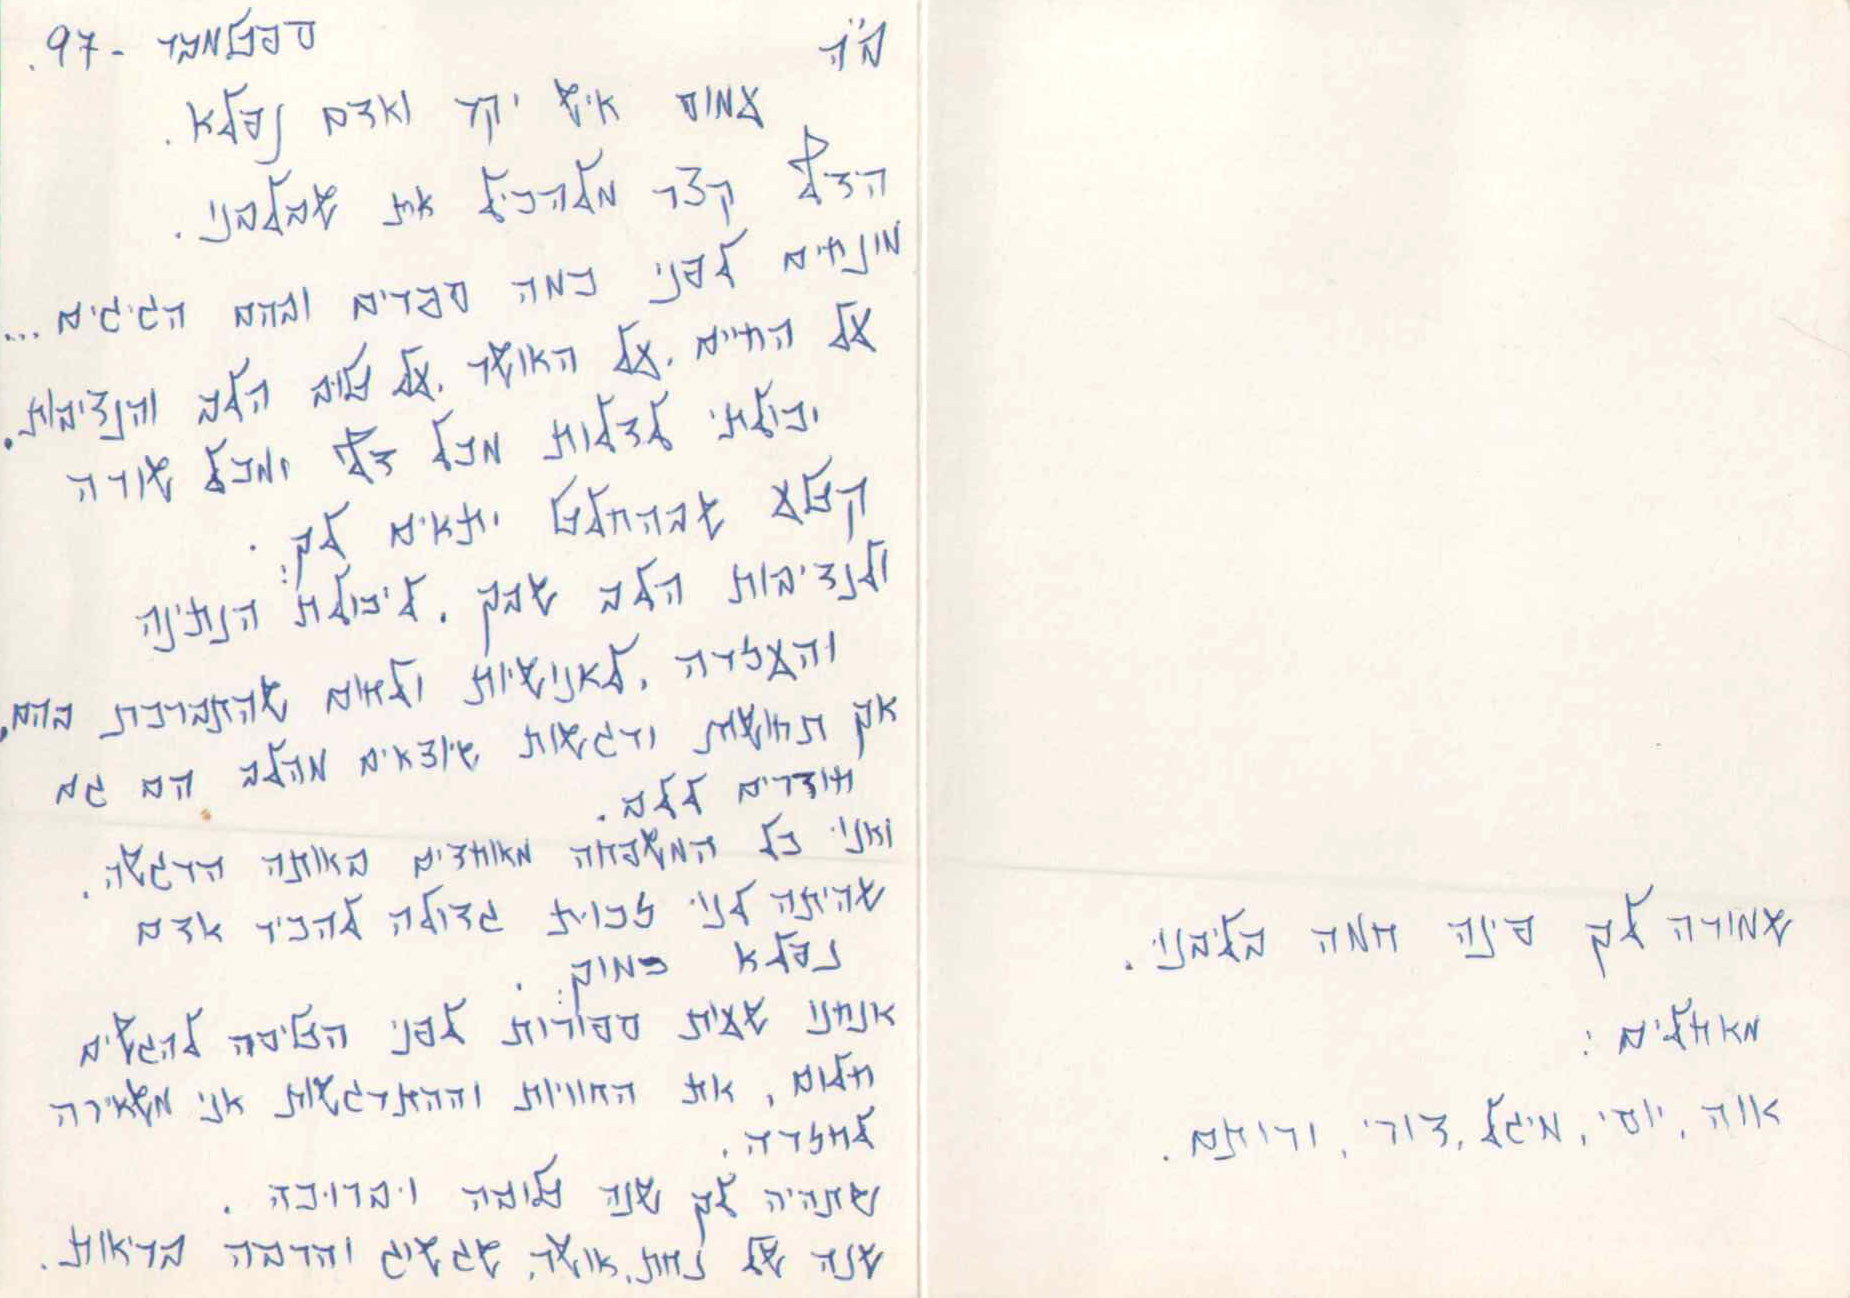 ב"ה
ספטמבר -97.
עמוס איש יקר ואדם נפלא.
הדף קצר מלהכיל את שבלבני.
מונחים לפני כמה ספרים ובהם הגיגים...
על החיים, על האושר, על טוב הלב והנדיבות.
יכולתי לדלות מכל דף ומכל שורה
קטע שבהחלט יתאים לך.
ולנדיבות הלב שבך, ליכולת הנתינה
והעזרה, לאנושיות ולחום שהתברכת בהם.
אך תחושות ורגשות שיוצאים מהלב הם גם
חודרים ללב.
ואני כל המשפחה מאוחדים באותה הרגשה.
שהיתה לנו זכות גדולה להכיר אדם
נפלא כמוך.
אנחנו שעות ספורות לפני הטיסה להגשים
חלום, את החוויות וההתרגשות אני משאירה
לחזרה.
שתהיה לך שנה טובה ומבורכת.
שנה של נחת, אושר, שגשוג והרבה בריאות.
שמורה לך פינה חמה בליבנו.
מאחלים:
אוה, יוסי, מיגל, דורי, ורותם.